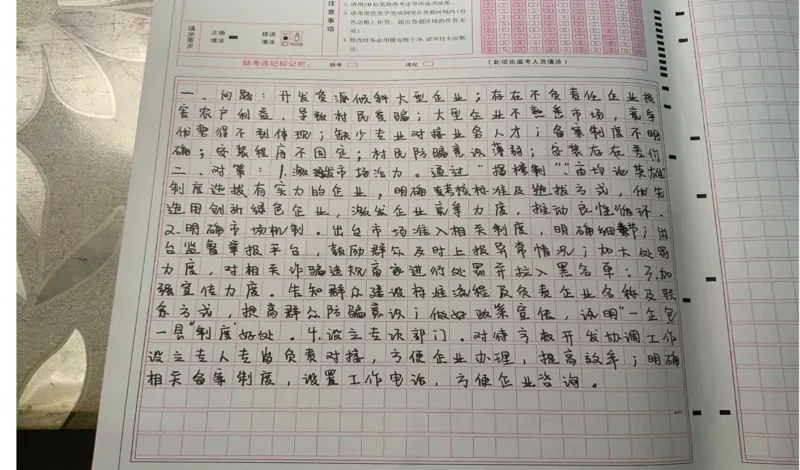 注意事项
2. 请用2B铅笔将准考证号所选项涂黑。
3. 请考黑色签字笔或钢笔在答题区域内(红
色边框)作答，超出答题区域的作答无
效！
4. 修改时务必用橡皮擦干净，请保持卡面整
洁。
填涂要求
正确填涂
错误填涂
缺考违纪标记栏：
缺考
违纪
(此项由监考人员填涂)
一、问题：开发资源倾斜大型企业；存在不负责任企业损
害农户利益，导致村民受骗；大型企业不熟悉市场，竞争
优势得不到体现；缺少专业对接业务人才；备案制度不明
确；安装程序不固定；村民防骗意识薄弱；安装存在差价
二、对策：1.激发市场活力。通过“揭榜制”、“亩均论英雄”
制度选拔有实力的企业，明确考核标准及选拔方式，优先
选用创新绿色企业，激发企业竞争力度，推动良性循环.
2.明确市场机制。出台市场准入相关制度，明确细节；出
台监督举报平台，鼓励群众及时上报异常情况；加大处罚
力度，对相关诈骗违规商家进行处罚并拉入黑名单；3.加
强宣传力度。告知群众建设标准流程及负责企业名称及联
系方式，提高群众防骗意识；做好政策宣传，说明“一企包
一县”制度好处。4.设立专项部门。对 开发协调工作
设立专人专岗负责对接，方便企业办理，提高效率；明确
相关备案制度，设置工作电话，方便企业咨询。